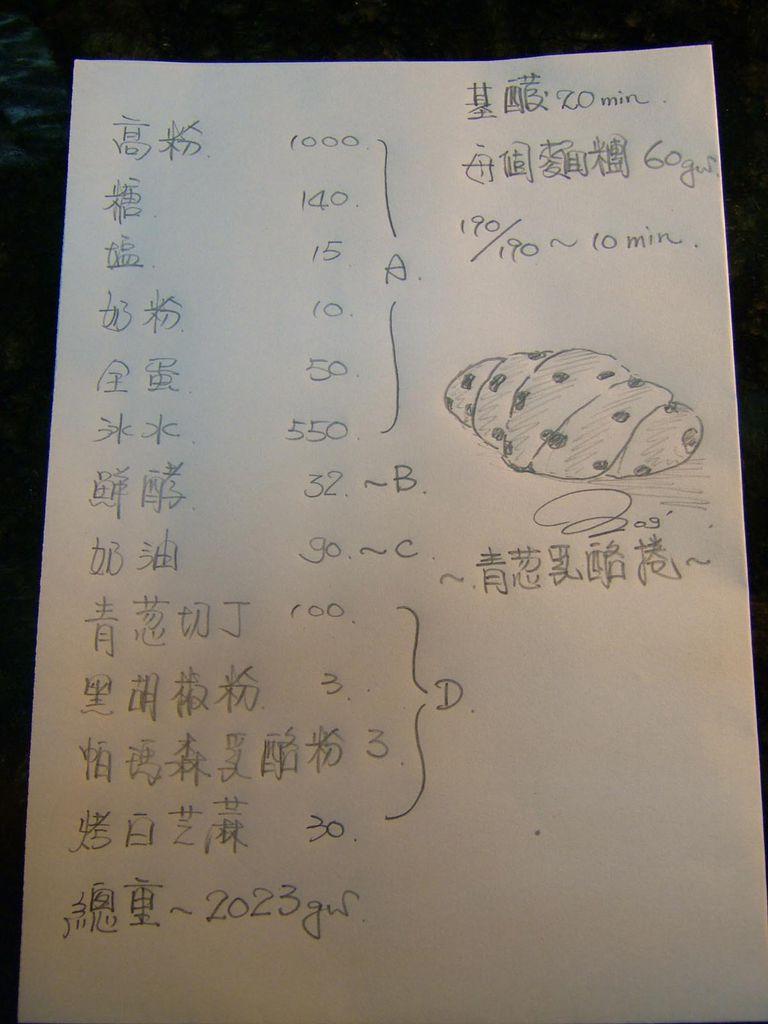 高粉 1000.
糖 140.
塩 15
奶粉 10.
全蛋 50.
氷水 550.
A.
鮮酵 32. ~B.
奶油 90. ~C.
青葱切丁 100.
黑胡椒粉 3.
帕瑪森乳酪粉 3.
烤白芝蔴 30.
D.
總重~2023gw.
基醱: 20min.
每個麵糰 60gw.
190/190 ~ 10min.
09'
~青葱乳酪捲~